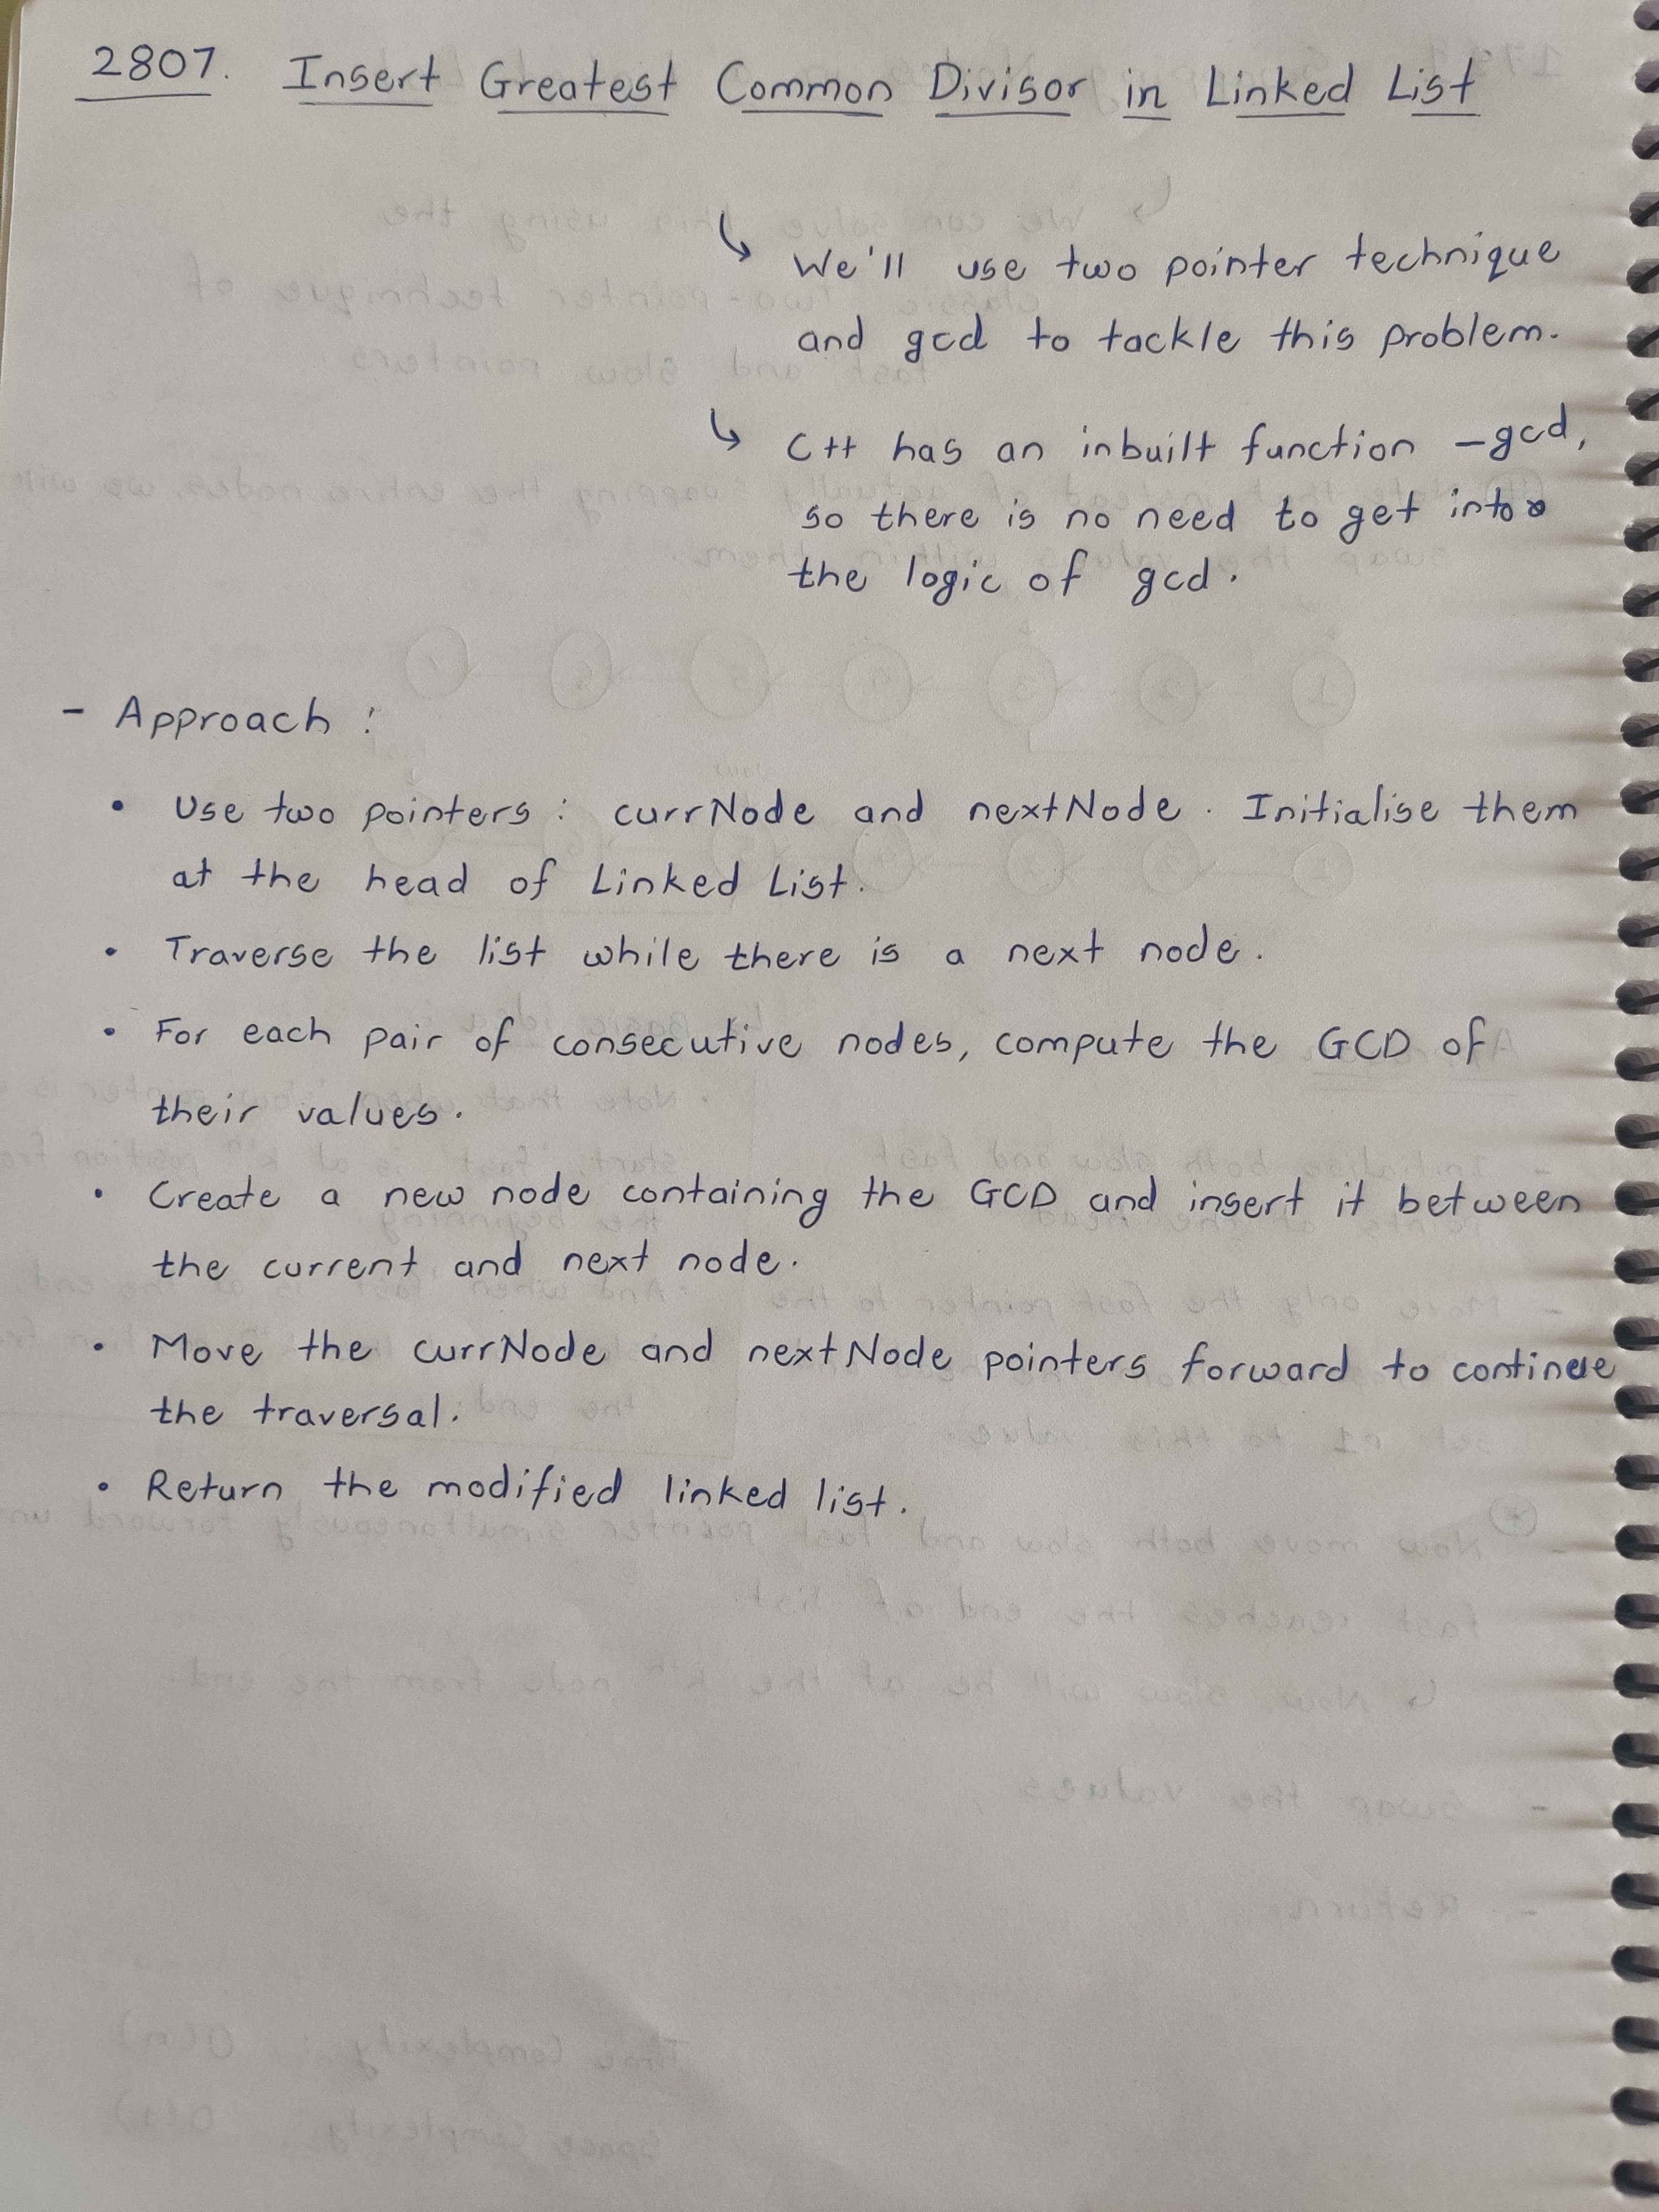 2807. Insert Greatest Common Divisor in Linked List
↳ We'll use two pointer technique
and gcd to tackle this problem.
↳ C++ has an inbuilt function -gcd,
so there is no need to get into
the logic of gcd.
- Approach :
• Use two pointers : currNode and nextNode. Initialise them
at the head of Linked List.
• Traverse the list while there is a next node.
• For each pair of consecutive nodes, compute the GCD of
their values.
• Create a new node containing the GCD and insert it between
the current and next node.
• Move the currNode and nextNode pointers forward to continue
the traversal.
• Return the modified linked list.